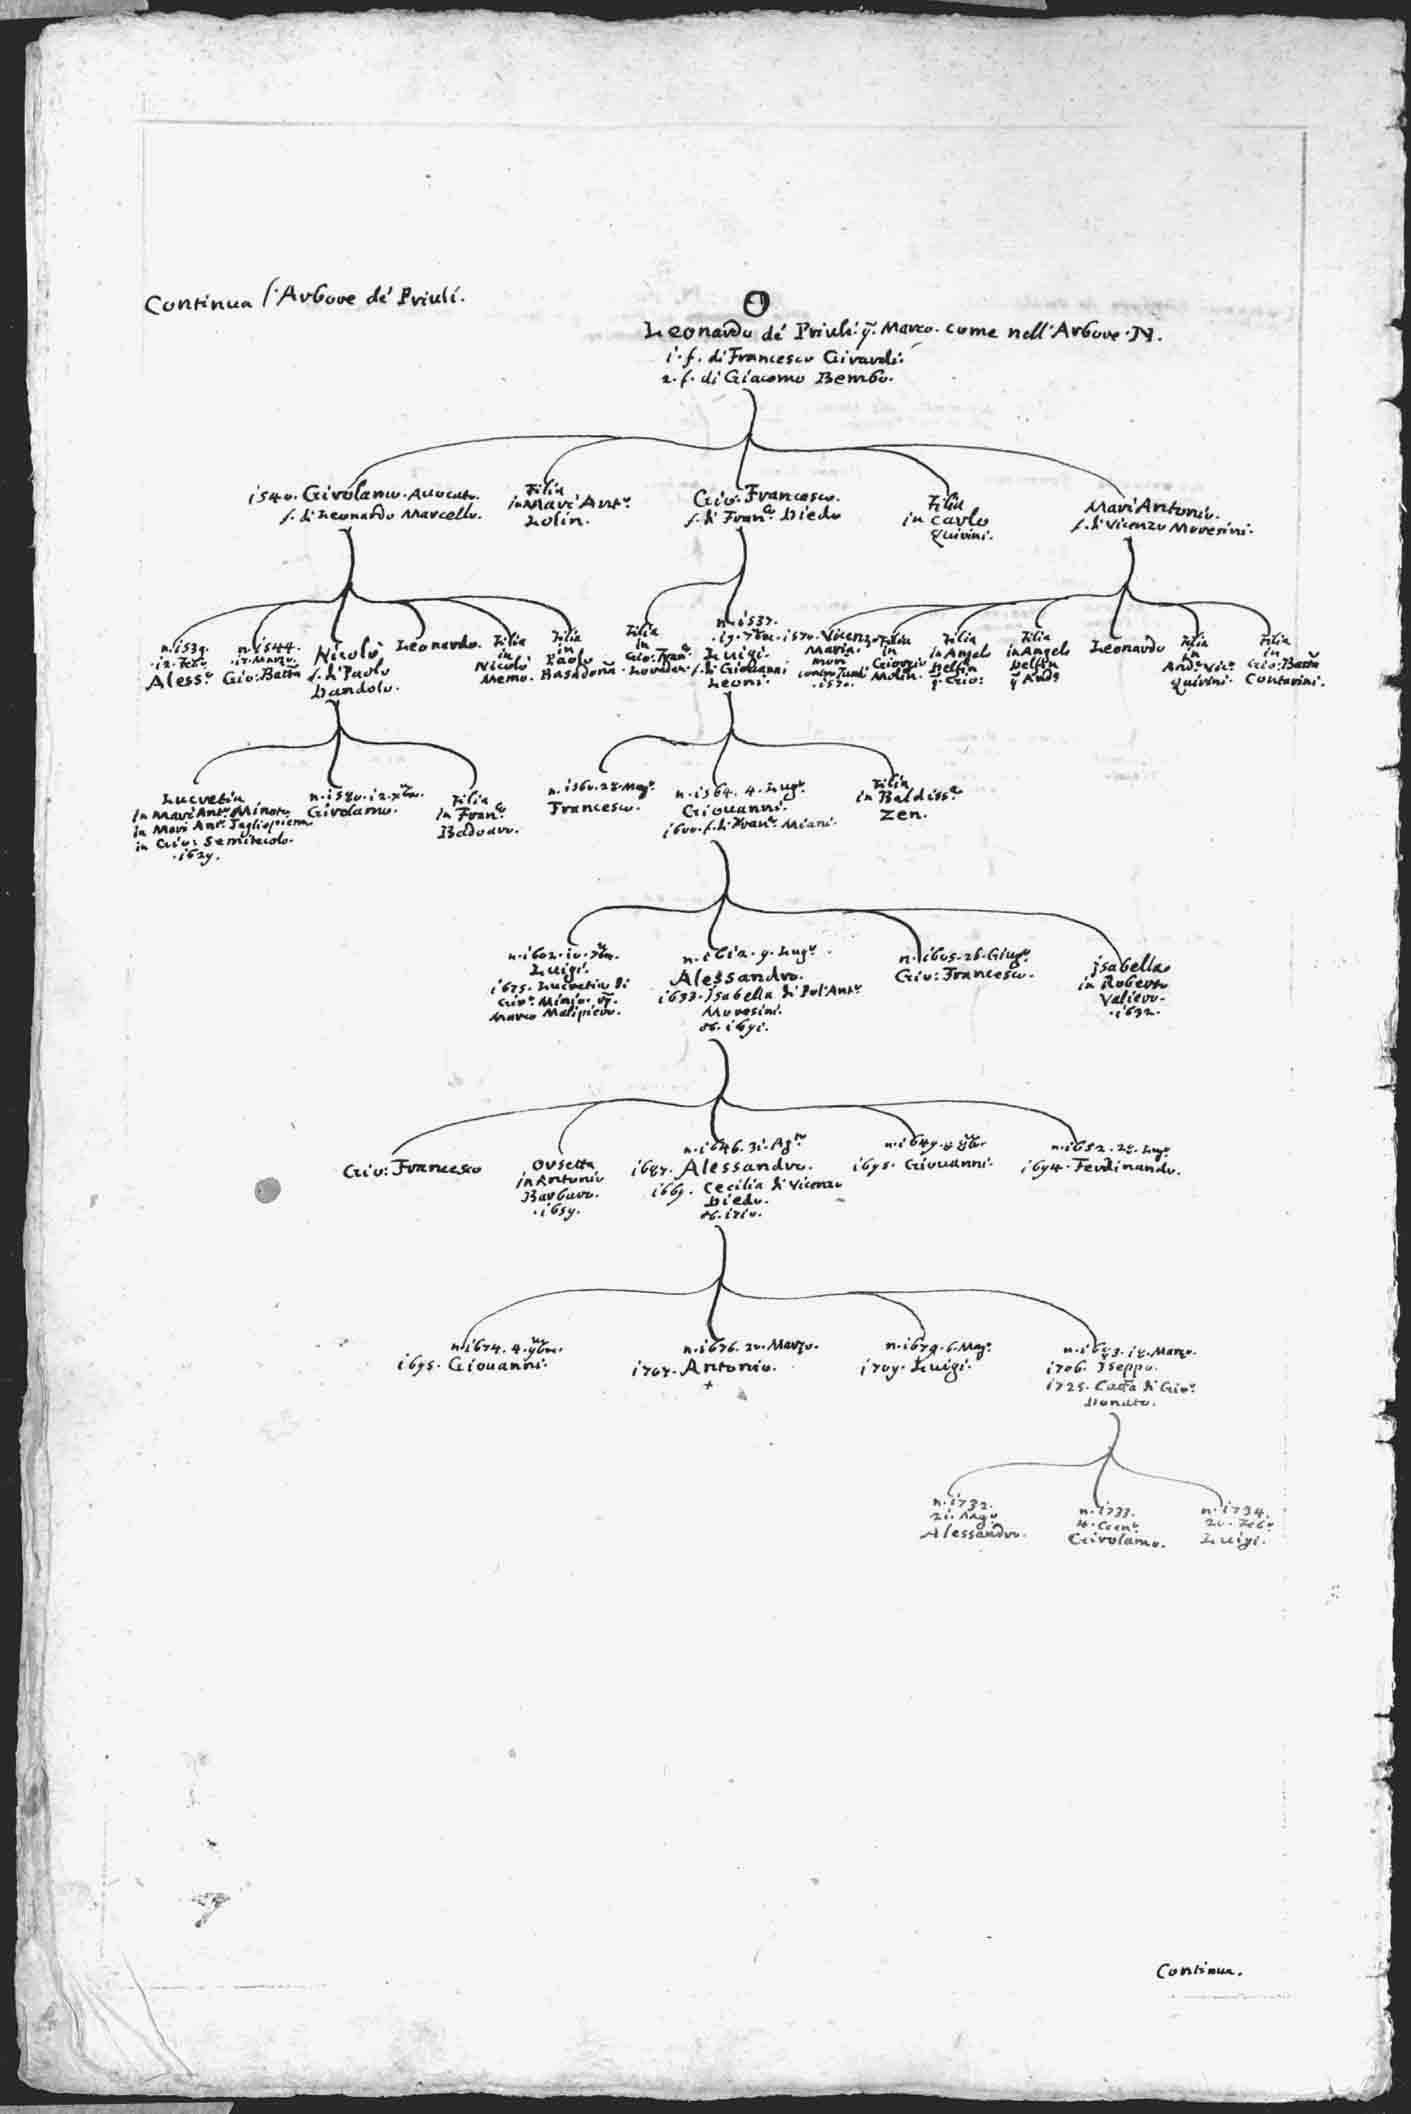 Continua l'Arbore de' Priuli.
O
Leonardo de' Priuli q. Marco. come nell'Arbore. N.
1. f. di Francesco Girardi.
2. f. di Giacomo Bembo.
1540. Girolamo. Auocato.
f. di Leonardo Marcello.
Filia
in Marc'Ant.o
Lolin.
Gio: Francesco.
f. di Fran.co Diedo
Filia
in Carlo
Quirini.
Marc'Antonio.
f. di Vicenzo Moresini.
n. 1539.
.12. Feb.o
Aless.o
n. 1544.
.17. Marzo.
Gio: Batta
Nicolò
f. di Paolo
Dandolo.
Leonardo.
Filia
in
Nicolò
Memo.
Filia
in
Paolo
Basadonna.
Filia
in
Gio: Fran.co
Loredan.
n. 1537.
.17. 7bre.
Luigi.
f. di Giouanni
Leoni.
1570. Vicenzo
Marin
morì
contro Turchi
.1570.
Filia
in
Giorgio
Molin.
Filia
in Angelo
Delfin
q. Gio:
Filia
in Angelo
Delfin
q. And.a
Leonardo
Filia
in
And.a Vic.o
Quirini.
Filia
in
Gio: Batta
Contarini.
Lucretia
in Marc'Ant.o Minoto
in Marc'Ant.o Tagliapietra
in Gio: Semitecolo.
.1629.
n. 1580. 12. xbre.
Girolamo.
Filia
in Fran.co
Badoaro.
n. 1560. 28. Mag.o
Francesco.
n. 1564. 4. Lug.o
Giouanni.
1600. f. di Fran.co Miani.
Filia
in Baldiss.a
Zen.
n. 1602. 10. 7bre.
Luigi.
1675. Lucretia di
Gio: Minio. v.
Marco Malipiero.
n. 1612. 9. Lug.o
Alessandro.
1633. Isabella di Pol'Ant.o
Moresini.
ob. 1691.
n. 1605. 26. Giug.o
Gio: Francesco.
Isabella
in Roberto
Valiero.
.1632.
Gio: Francesco
Orsetta
in Antonio
Barbaro.
.1659.
n. 1646. 31. Ag.to
1687. Alessandro.
1669. Cecilia di Vicenzo
Diedo.
ob. 1710.
n. 1649. 9. 8bre.
1695. Giouanni.
n. 1652. 28. Lug.o
1694. Ferdinando.
n. 1674. 4. 9bre.
1695. Giouanni.
n. 1676. 20. Marzo.
1707. Antonio.
+
n. 1679. 6. Mag.o
1709. Luigi.
n. 1683. 18. Marzo.
1706. Iseppo.
1725. Catta di Gio:
Donato.
n. 1732.
21. Mag.o
Alessandro.
n. 1733.
4. Genn.o
Girolamo.
n. 1734.
20. Feb.o
Luigi.
Continua.